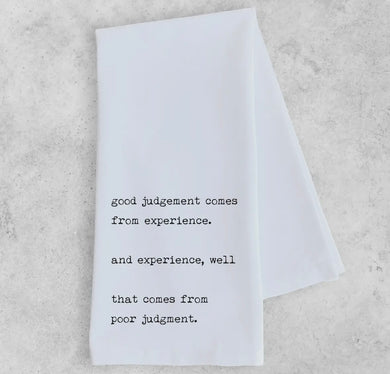 good judgement comes
from experience.
and experience, well
that comes from
poor judgment.